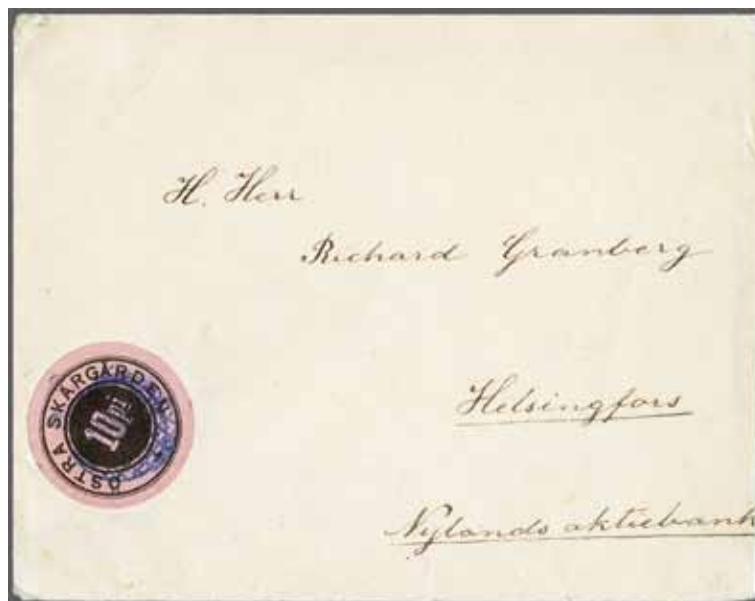 H. Herr
Richard Granberg
Helsingfors
Nylands aktiebank
ÖSTRA SKÄRGÅRDEN
10 pi